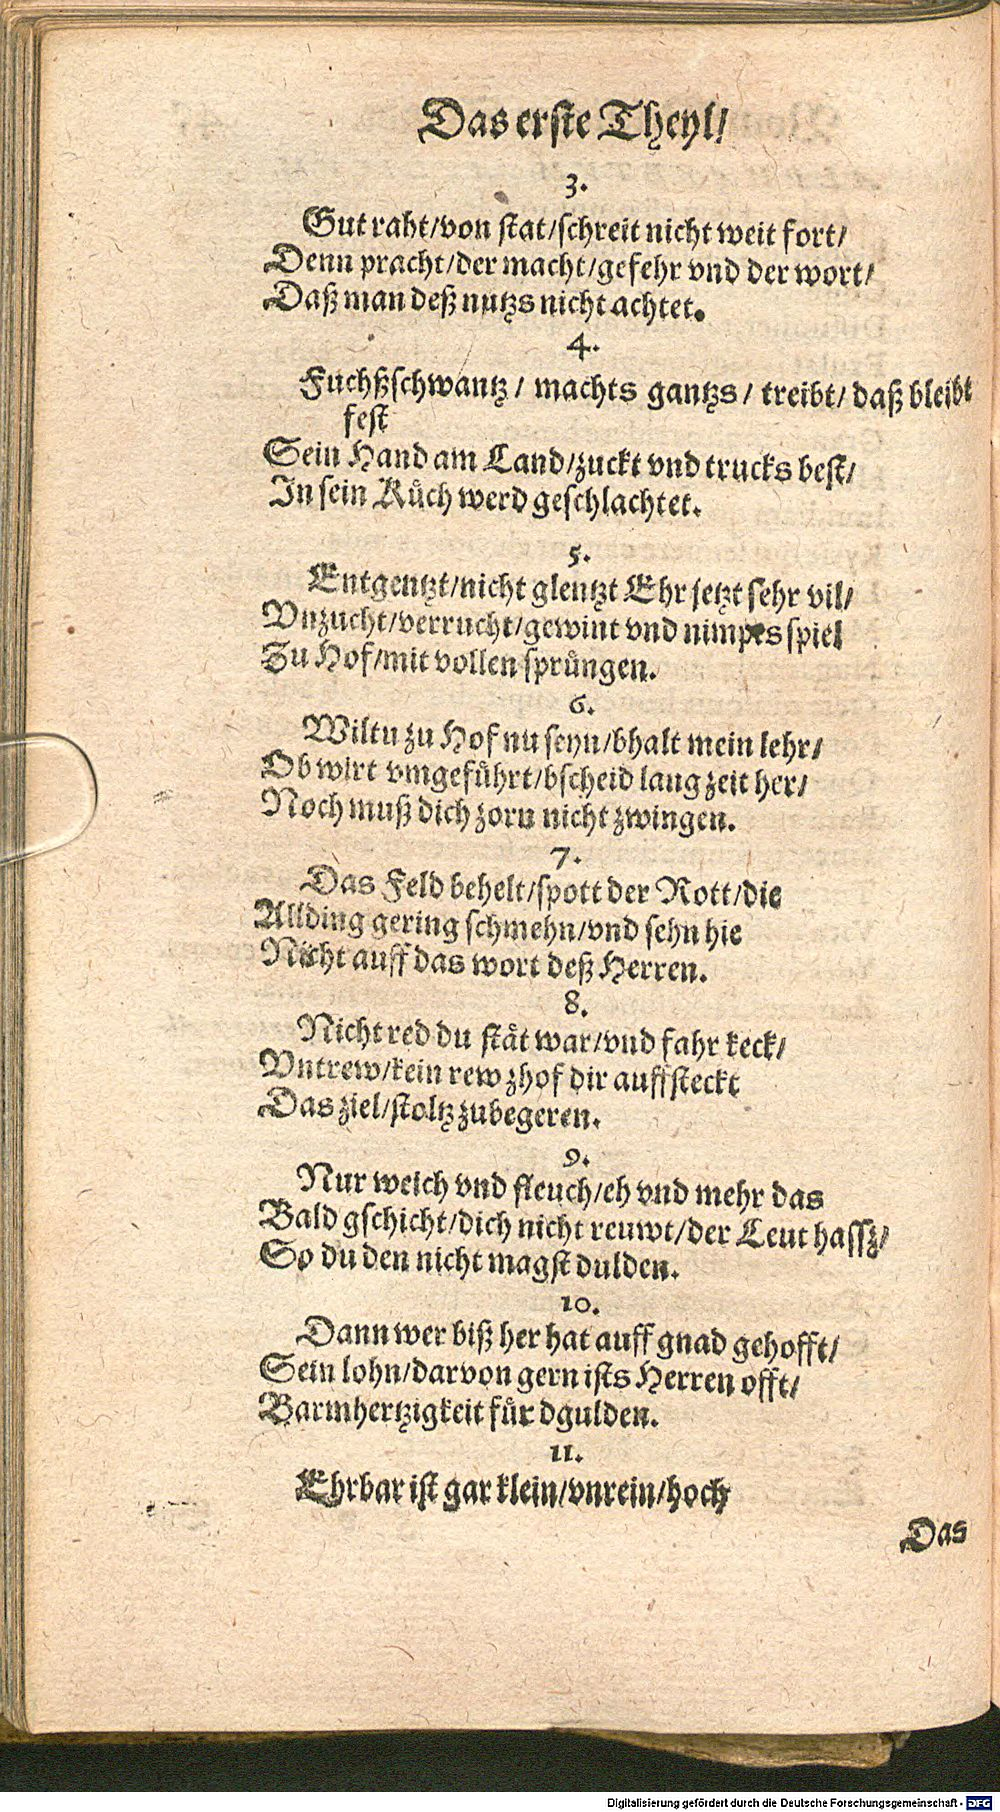 Das erste Theyl/
3.
Gut raht/von stat/schreit nicht weit fort/
Denn pracht/der macht/gefehr vnd der wort/
Daß man deß nutzs nicht achtet.
4.
Fuchßschwantz / machts gantzs / treibt/ daß bleibt
fest
Sein Hand am Land/zuckt vnd trucks best/
In sein Küch werd geschlachtet.
5.
Entgentzt/nicht glentzt Ehr jetzt sehr vil/
Vnzucht/verrucht/gewint vnd nimpts spiel
Zu Hof/mit vollen sprüngen.
6.
Wiltu zu Hof nu seyn/bhalt mein lehr/
Ob wirt vmgeführt/bscheid lang zeit her/
Noch muß dich zorn nicht zwingen.
7.
Das Feld behelt/spott der Rott/die
Allding gering schmehn/vnd sehn hie
Nicht auff das wort deß Herren.
8.
Nicht red du stät war/vnd fahr keck/
Vntrew/kein rew zhof dir auffsteckt
Das ziel/stoltz zubegeren.
9.
Nur weich vnd fleuch/eh vnd mehr das
Bald gschicht/dich nicht reuwt/der Leut hassz/
So du den nicht magst dulden.
10.
Dann wer biß her hat auff gnad gehofft/
Sein lohn/darvon gern ists Herren offt/
Barmhertzigkeit für dgulden.
11.
Ehrbar ist gar klein/vnrein/hoch
Das
Digitalisierung gefördert durch die Deutsche Forschungsgemeinschaft - DFG